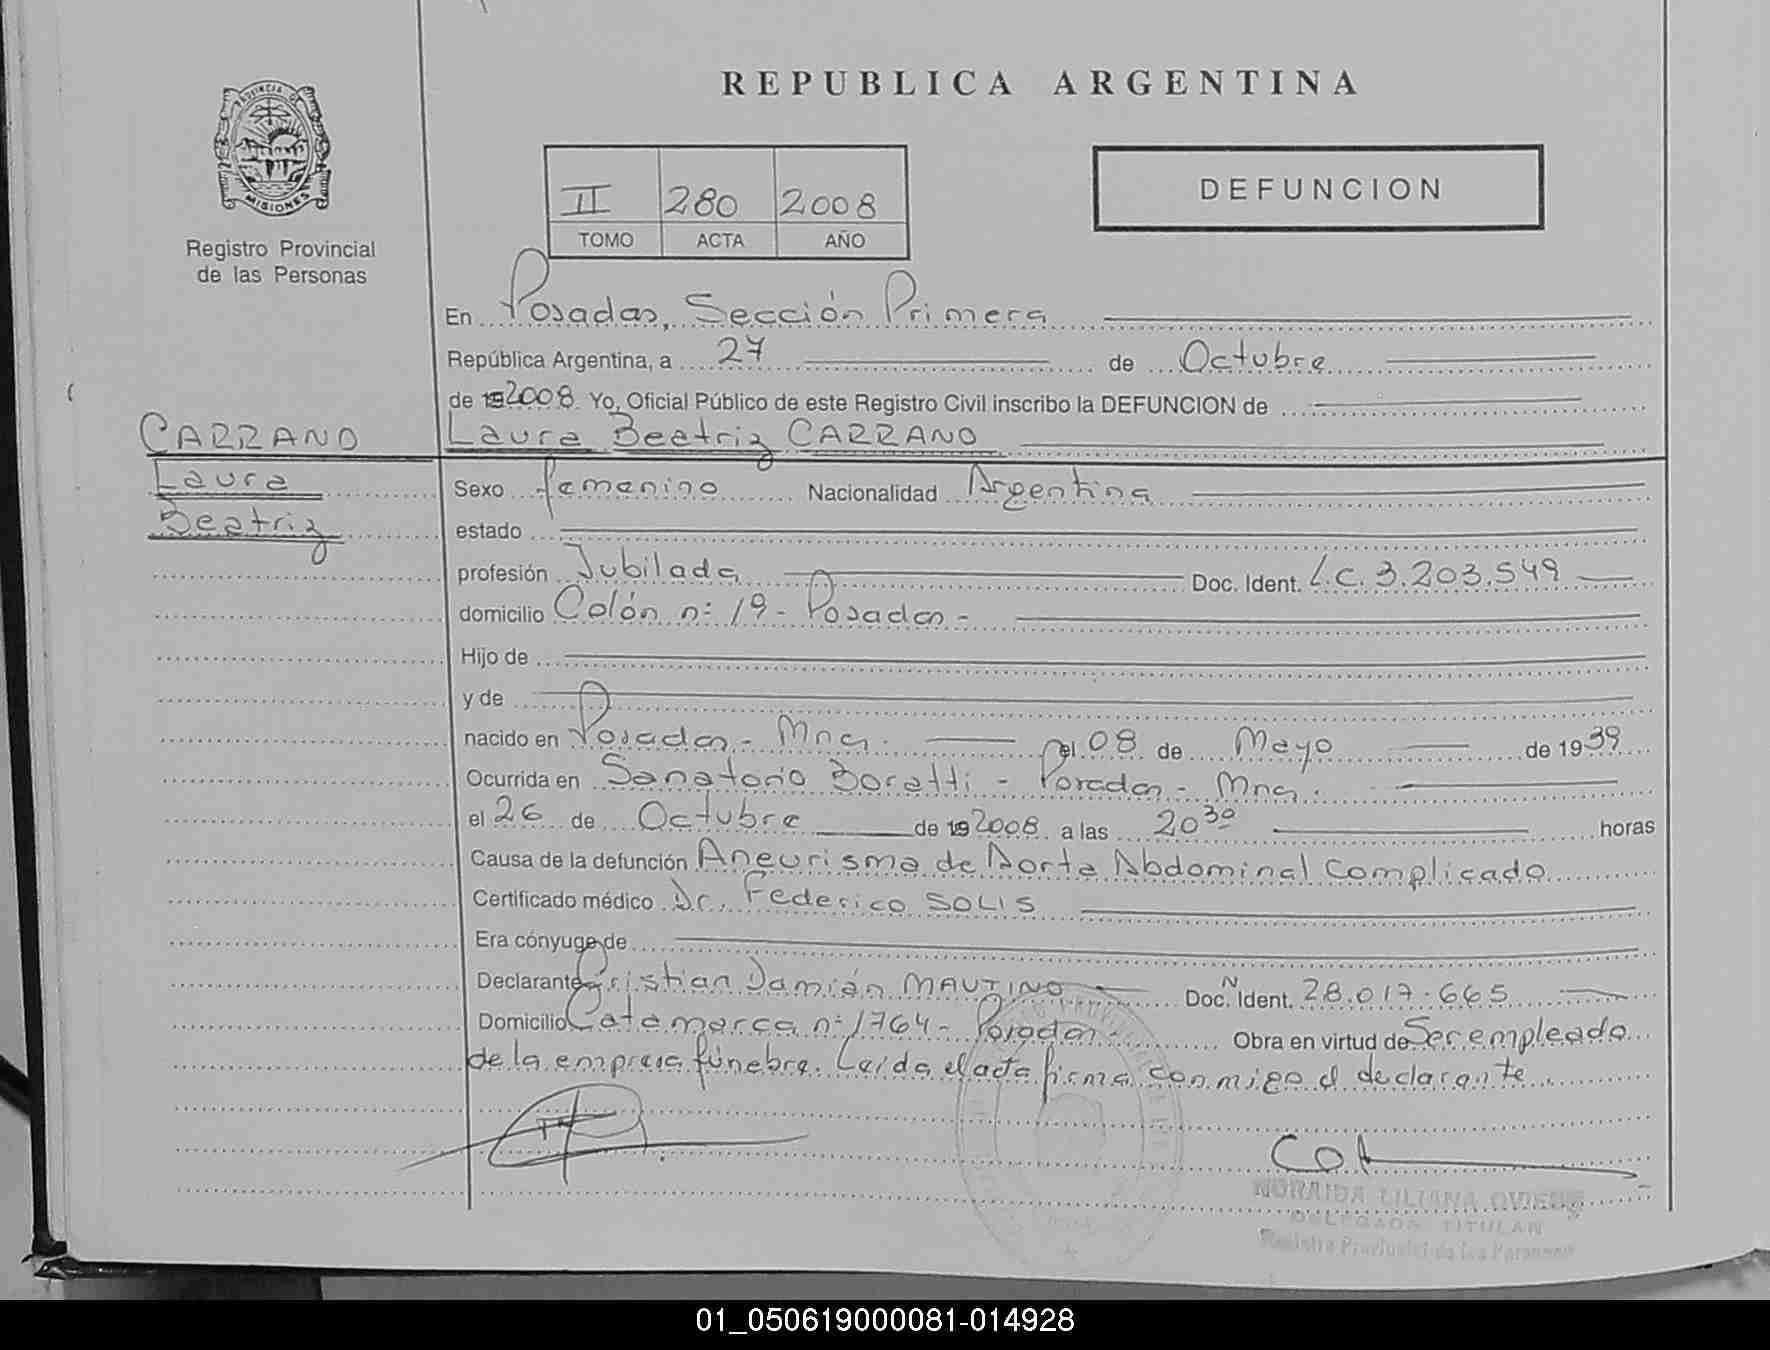 REPUBLICA ARGENTINA
PROVINCIA DE
MISIONES
Registro Provincial
de las Personas
II 280 2008
TOMO ACTA AÑO
DEFUNCION
En Posadas, Sección Primera
República Argentina, a 27 de Octubre
de 2008. Yo, Oficial Público de este Registro Civil inscribo la DEFUNCION de
CARRANO
Laura Beatriz CARRANO
Laura
Beatriz
Sexo femenino Nacionalidad Argentina
estado
profesión Jubilada Doc. Ident. L.C. 3.203.549
domicilio Colón n: 19 - Posadas -
Hijo de
y de
nacido en Posadas - Mnes. el 08 de Mayo de 1939
Ocurrida en Sanatorio Boratti - Posadas - Mnes.
el 26 de Octubre de 192008 a las 20 30 horas
Causa de la defunción Aneurisma de Aorta Abdominal Complicado
Certificado médico Dr. Federico SOLIS
Era cónyuge de
Declarante Cristian Damián MAUTINO Doc. N Ident. 28.017.665
Domicilio Catamarca n: 1764 - Posadas Obra en virtud de Ser empleado
de la empresa fúnebre. Leída el acta firma conmigo el declarante
NORAIDA LILIANA OVIEDO
DELEGADA TITULAR
Registro Provincial de las Personas
01_050619000081-014928